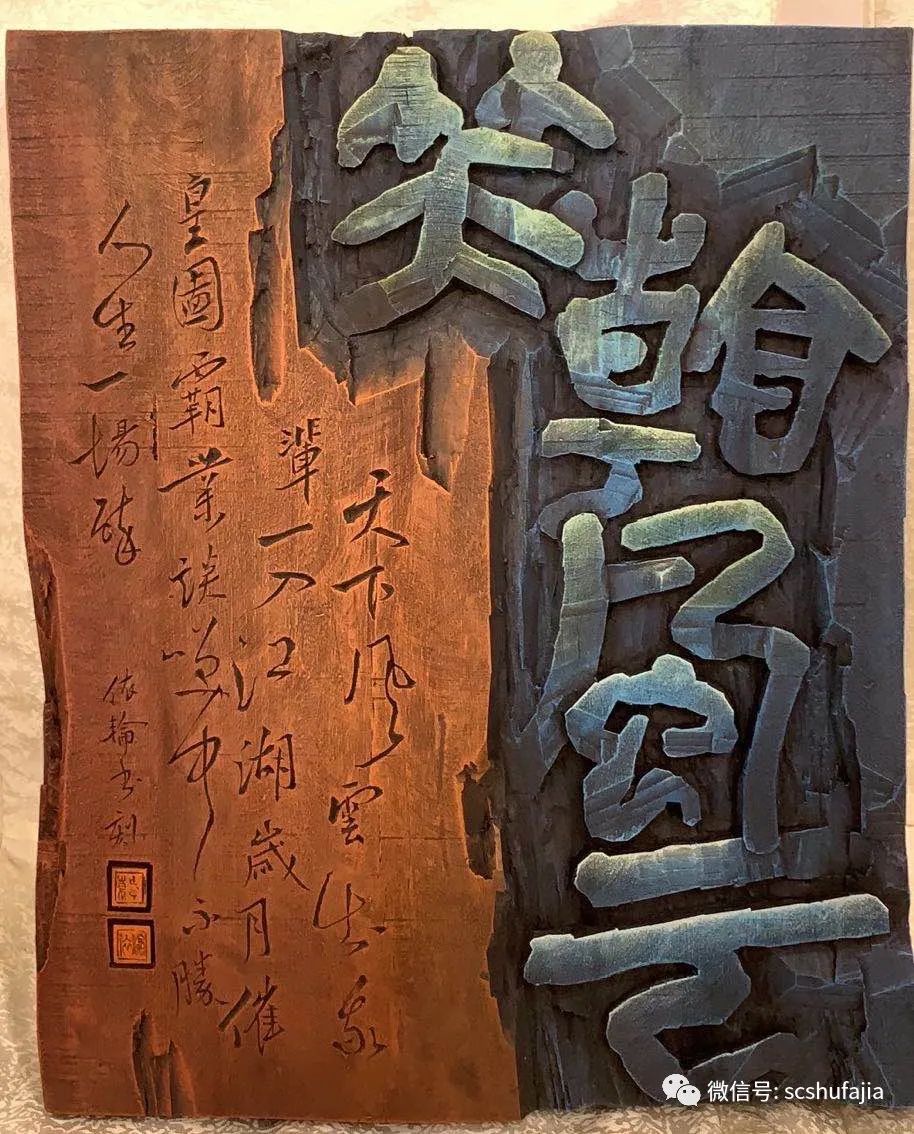 笑看風云
天下風雲出我
輩一入江湖歲月催
皇圖覇業談笑中不勝
人生一場醉
依輪书刻
微信号: scshufajia